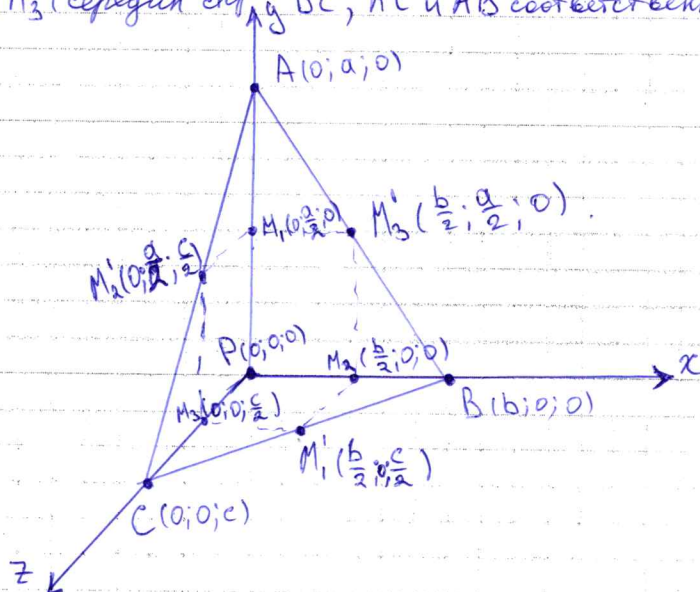 M₃ (середин BC, AC и AB соответствен
y
A(0;a;0)
M₁(0;a/2;0)
M₃'(b/2;a/2;0).
M₂'(0;a/2;c/2)
P(0;0;0)
M₂(b/2;0;0)
x
M₃(0;0;c/2)
B(b;0;0)
M₁'(b/2;0;c/2)
C(0;0;c)
z